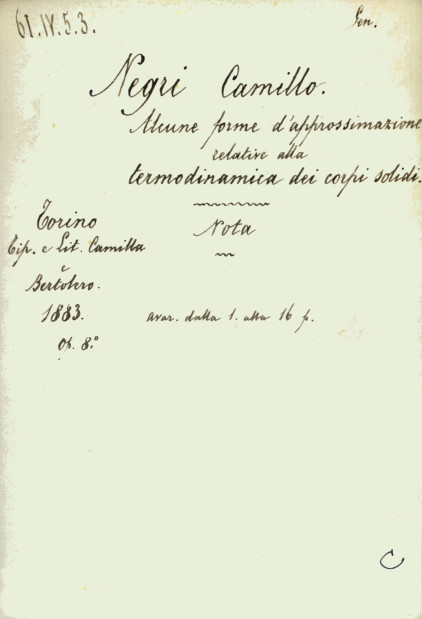 61.IV.5.3.
Gen.
Negri Camillo.
Alcune forme d'approssimazione
relative alla
termodinamica dei corpi solidi.
Torino
Nota
Tip. e Lit. Camilla
e
Bertolero.
1883.
avar. dalla 1. alla 16 p.
Op. 8.°
C